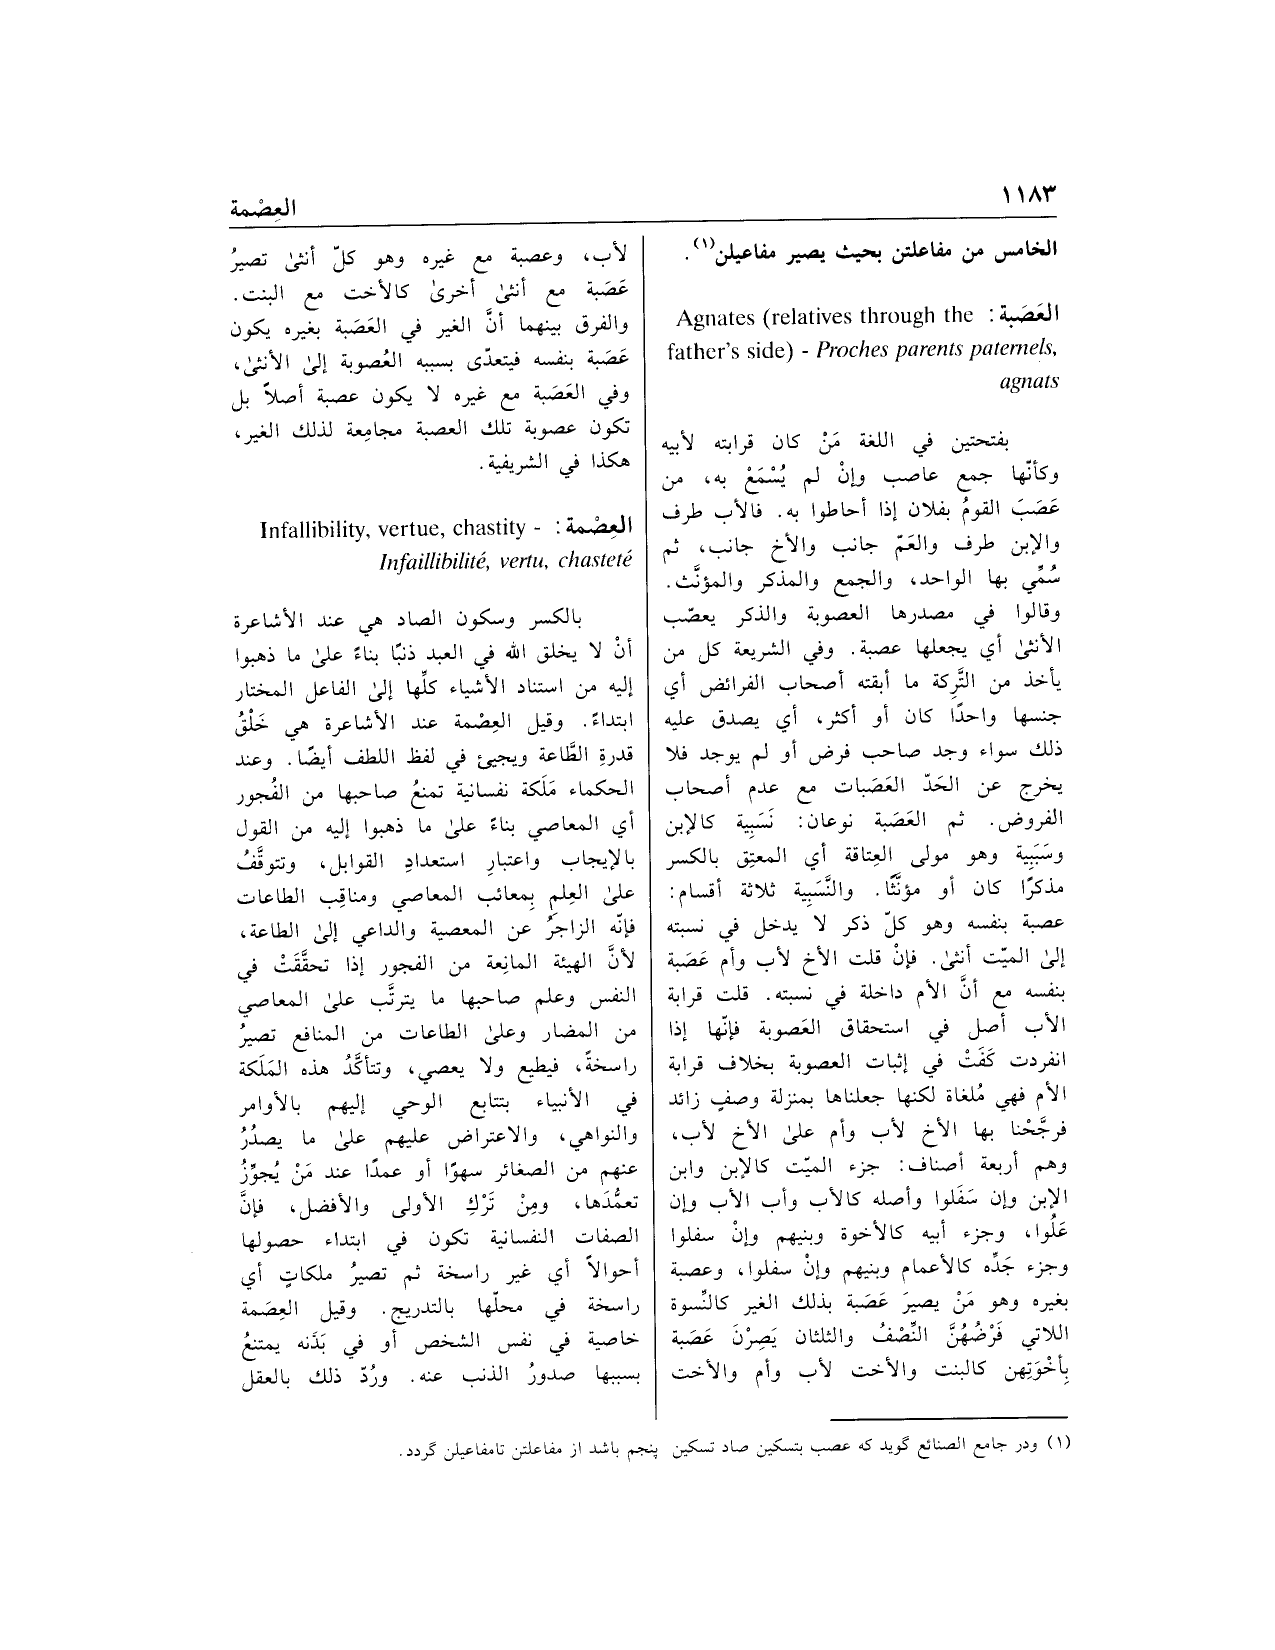 ١١٨٣
العِصْمة
الخامس من مفاعلتن بحيث يصير مفاعيلن(١).
العَصَبة : Agnates (relatives through the
father's side) - Proches parents paternels,
agnats
بفتحتين في اللغة مَنْ كان قرابته لأبيه
وكأنّها جمع عاصب وإنْ لم يُسْمَعْ به، من
عَصَبَ القومُ بفلان إذا أحاطوا به. فالأب طرف
والإبن طرف والعَمّ جانب والأخ جانب، ثم
سُمِّي بها الواحد، والجمع والمذكر والمؤنَّث.
وقالوا في مصدرها العصوبة والذكر يعصّب
الأنثىٰ أي يجعلها عصبة. وفي الشريعة كل من
يأخذ من التَّرِكة ما أبقته أصحاب الفرائض أي
جنسها واحدًا كان أو أكثر، أي يصدق عليه
ذلك سواء وجد صاحب فرض أو لم يوجد فلا
يخرج عن الحَدّ العَصَبات مع عدم أصحاب
الفروض. ثم العَصَبة نوعان: نَسَبِية كالإبن
وسَبَبِية وهو مولى العِتاقة أي المعتِق بالكسر
مذكرًا كان أو مؤنَّثًا. والنَّسَبِية ثلاثة أقسام:
عصبة بنفسه وهو كلّ ذكر لا يدخل في نسبته
إلىٰ الميّت أنثىٰ. فإنْ قلت الأخ لأب وأم عَصَبة
بنفسه مع أنَّ الأم داخلة في نسبته. قلت قرابة
الأب أصل في استحقاق العَصوبة فإنّها إذا
انفردت كَفَتْ في إثبات العصوبة بخلاف قرابة
الأم فهي مُلغاة لكنها جعلناها بمنزلة وصفٍ زائد
فرجَّحْنا بها الأخ لأب وأم علىٰ الأخ لأب،
وهم أربعة أصناف: جزء الميّت كالإبن وابن
الإبن وإن سَفَلوا وأصله كالأب وأب الأب وإن
عَلُوا، وجزء أبيه كالأخوة وبنيهم وإنْ سفلوا
وجزء جَدِّه كالأعمام وبنيهم وإنْ سفلوا، وعصبة
بغيره وهو مَنْ يصيرَ عَصَبة بذلك الغير كالنِّسوة
اللاتي فَرْضُهُنَّ النِّصْفُ والثلثان يَصِرْنَ عَصَبة
بِأخْوَتِهن كالبنت والأخت لأب وأم والأخت
لأب، وعصبة مع غيره وهو كلّ أنثىٰ تصيرُ
عَصَبة مع أنثىٰ أخرىٰ كالأخت مع البنت.
والفرق بينهما أنَّ الغير في العَصَبة بغيره يكون
عَصَبة بنفسه فيتعدّى بسببه العُصوبة إلىٰ الأنثىٰ،
وفي العَصَبة مع غيره لا يكون عصبة أصلاً بل
تكون عصوبة تلك العصبة مجامِعة لذلك الغير،
هكذا في الشريفية.
العِصْمة : Infallibility, vertue, chastity -
Infaillibilité, vertu, chasteté
بالكسر وسكون الصاد هي عند الأشاعرة
أنْ لا يخلق الله في العبد ذنبًا بناءً علىٰ ما ذهبوا
إليه من استناد الأشياء كلِّها إلىٰ الفاعل المختار
ابتداءً. وقيل العِصْمة عند الأشاعرة هي خَلْقُ
قدرةِ الطَّاعة ويجيئ في لفظ اللطف أيضًا. وعند
الحكماء مَلَكة نفسانية تمنعُ صاحبها من الفُجور
أي المعاصي بناءً علىٰ ما ذهبوا إليه من القول
بالإيجاب واعتبارِ استعدادِ القوابل، وتتوقَّفُ
علىٰ العِلمِ بِمعائب المعاصي ومناقِب الطاعات
فإنّه الزاجرُ عن المعصية والداعي إلىٰ الطاعة،
لأنَّ الهيئة المانِعة من الفجور إذا تحقَّقَتْ في
النفس وعلم صاحبها ما يترتَّب علىٰ المعاصي
من المضار وعلىٰ الطاعات من المنافع تصيرُ
راسخةً، فيطيع ولا يعصي، وتتأكَّدُ هذه المَلَكة
في الأنبياء بتتابع الوحي إليهم بالأوامر
والنواهي، والاعتراض عليهم علىٰ ما يصدُرُ
عنهم من الصغائر سهوًا أو عمدًا عند مَنْ يُجوِّزُ
تعمُّدَها، ومِنْ تَرْكِ الأولى والأفضل، فإنَّ
الصفات النفسانية تكون في ابتداء حصولها
أحوالاً أي غير راسخة ثم تصيرُ ملكاتٍ أي
راسخة في محلّها بالتدريج. وقيل العِصَمة
خاصية في نفس الشخص أو في بَدَنه يمتنعُ
بسببها صدورُ الذنب عنه. ورُدّ ذلك بالعقل
(١) ودر جامع الصنائع گويد كه عصب بتسكين صاد تسكين پنجم باشد از مفاعلتن تامفاعيلن گردد.